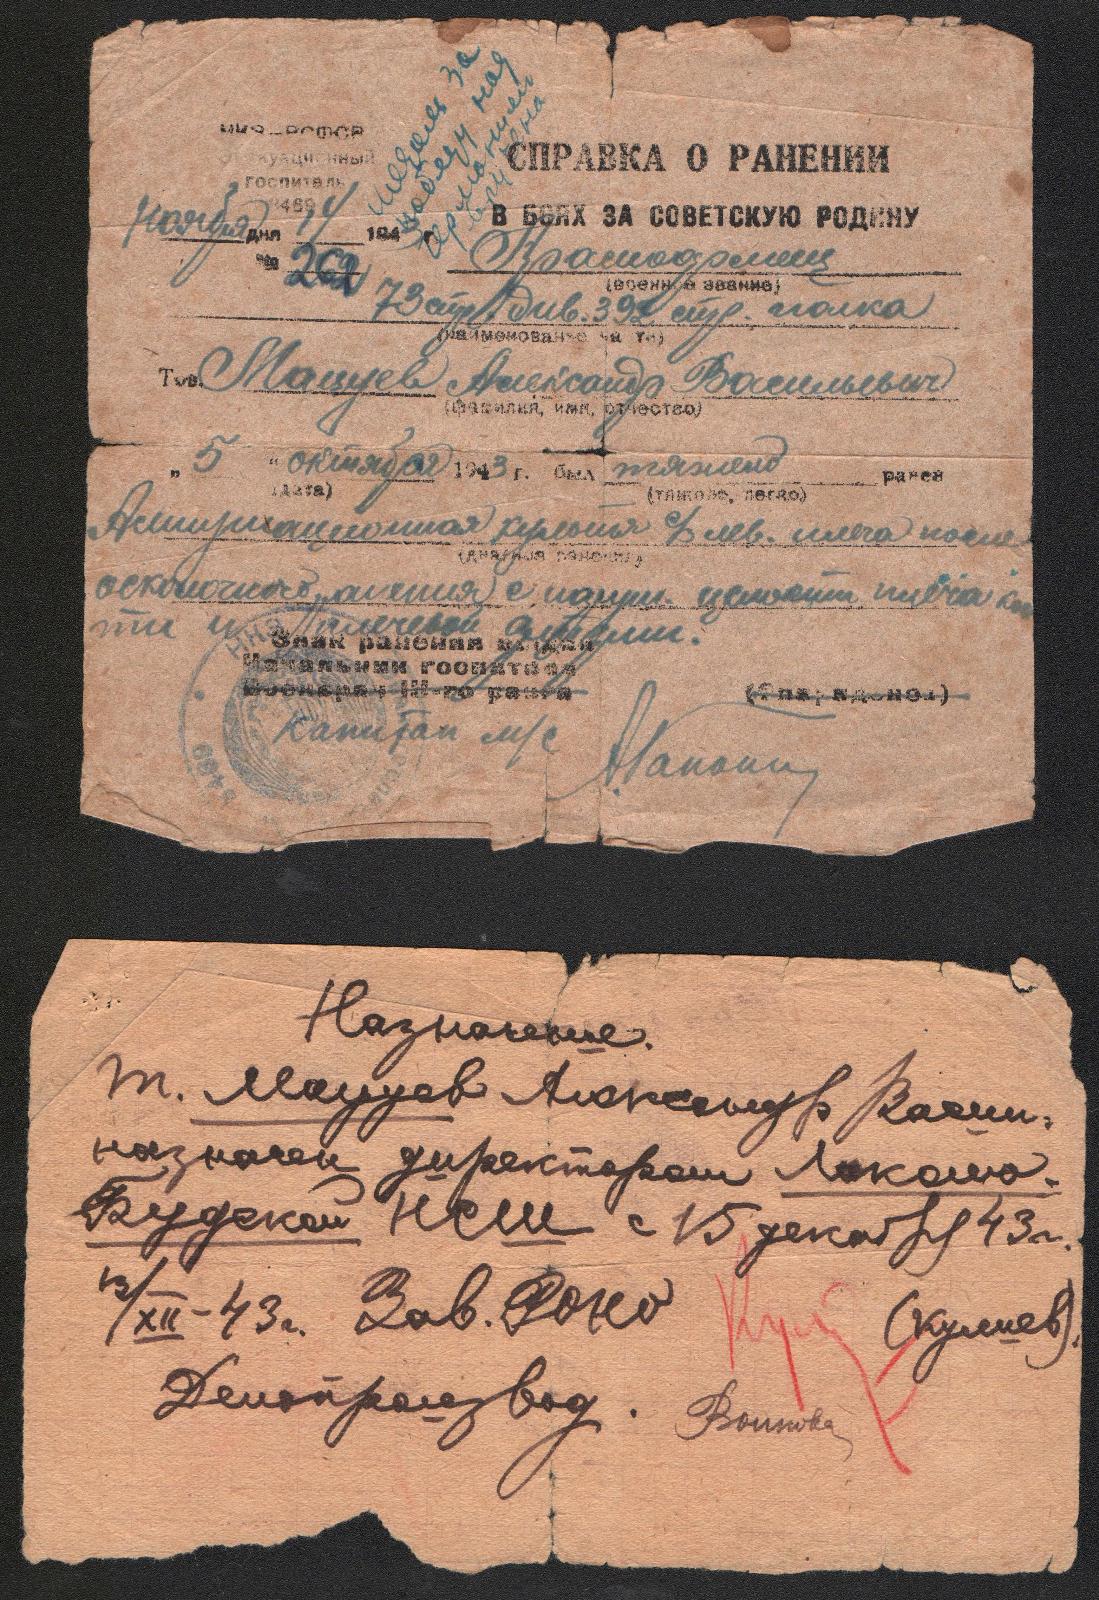 НКЗ-РСФСР
Эвакуационный
госпиталь
3469
медаль за
победу над
германией
вручена
СПРАВКА О РАНЕНИИ
В БОЯХ ЗА СОВЕТСКУЮ РОДИНУ
Ноября дня 14 194 г.
№ 262
Краснофлотец
(военное звание)
73 стр. див. 392 стр. полка
(наименование части)
Тов. Мацуев Александр Васильевич
(фамилия, имя, отчество)
„ 5 “ октября 1943 г. был тяжело ранен
(дата) (тяжело, легко)
Ампутационная культя с/з лев. плеча после
(диагноз ранения)
осколочного ранения с наруш. целости плеча кос
ти и плечевой артерии.
Знак ранения выдан
Начальник госпиталя
Военврач III-го ранга
капитан м/с
Назначение.
т. Мацуев Александр Васил.
назначен директором
Будской НСШ с 15 декабря 43 г.
13/XII-43 г. Зав. РОНО (Кулиев).
Делопроизвод. Волкова